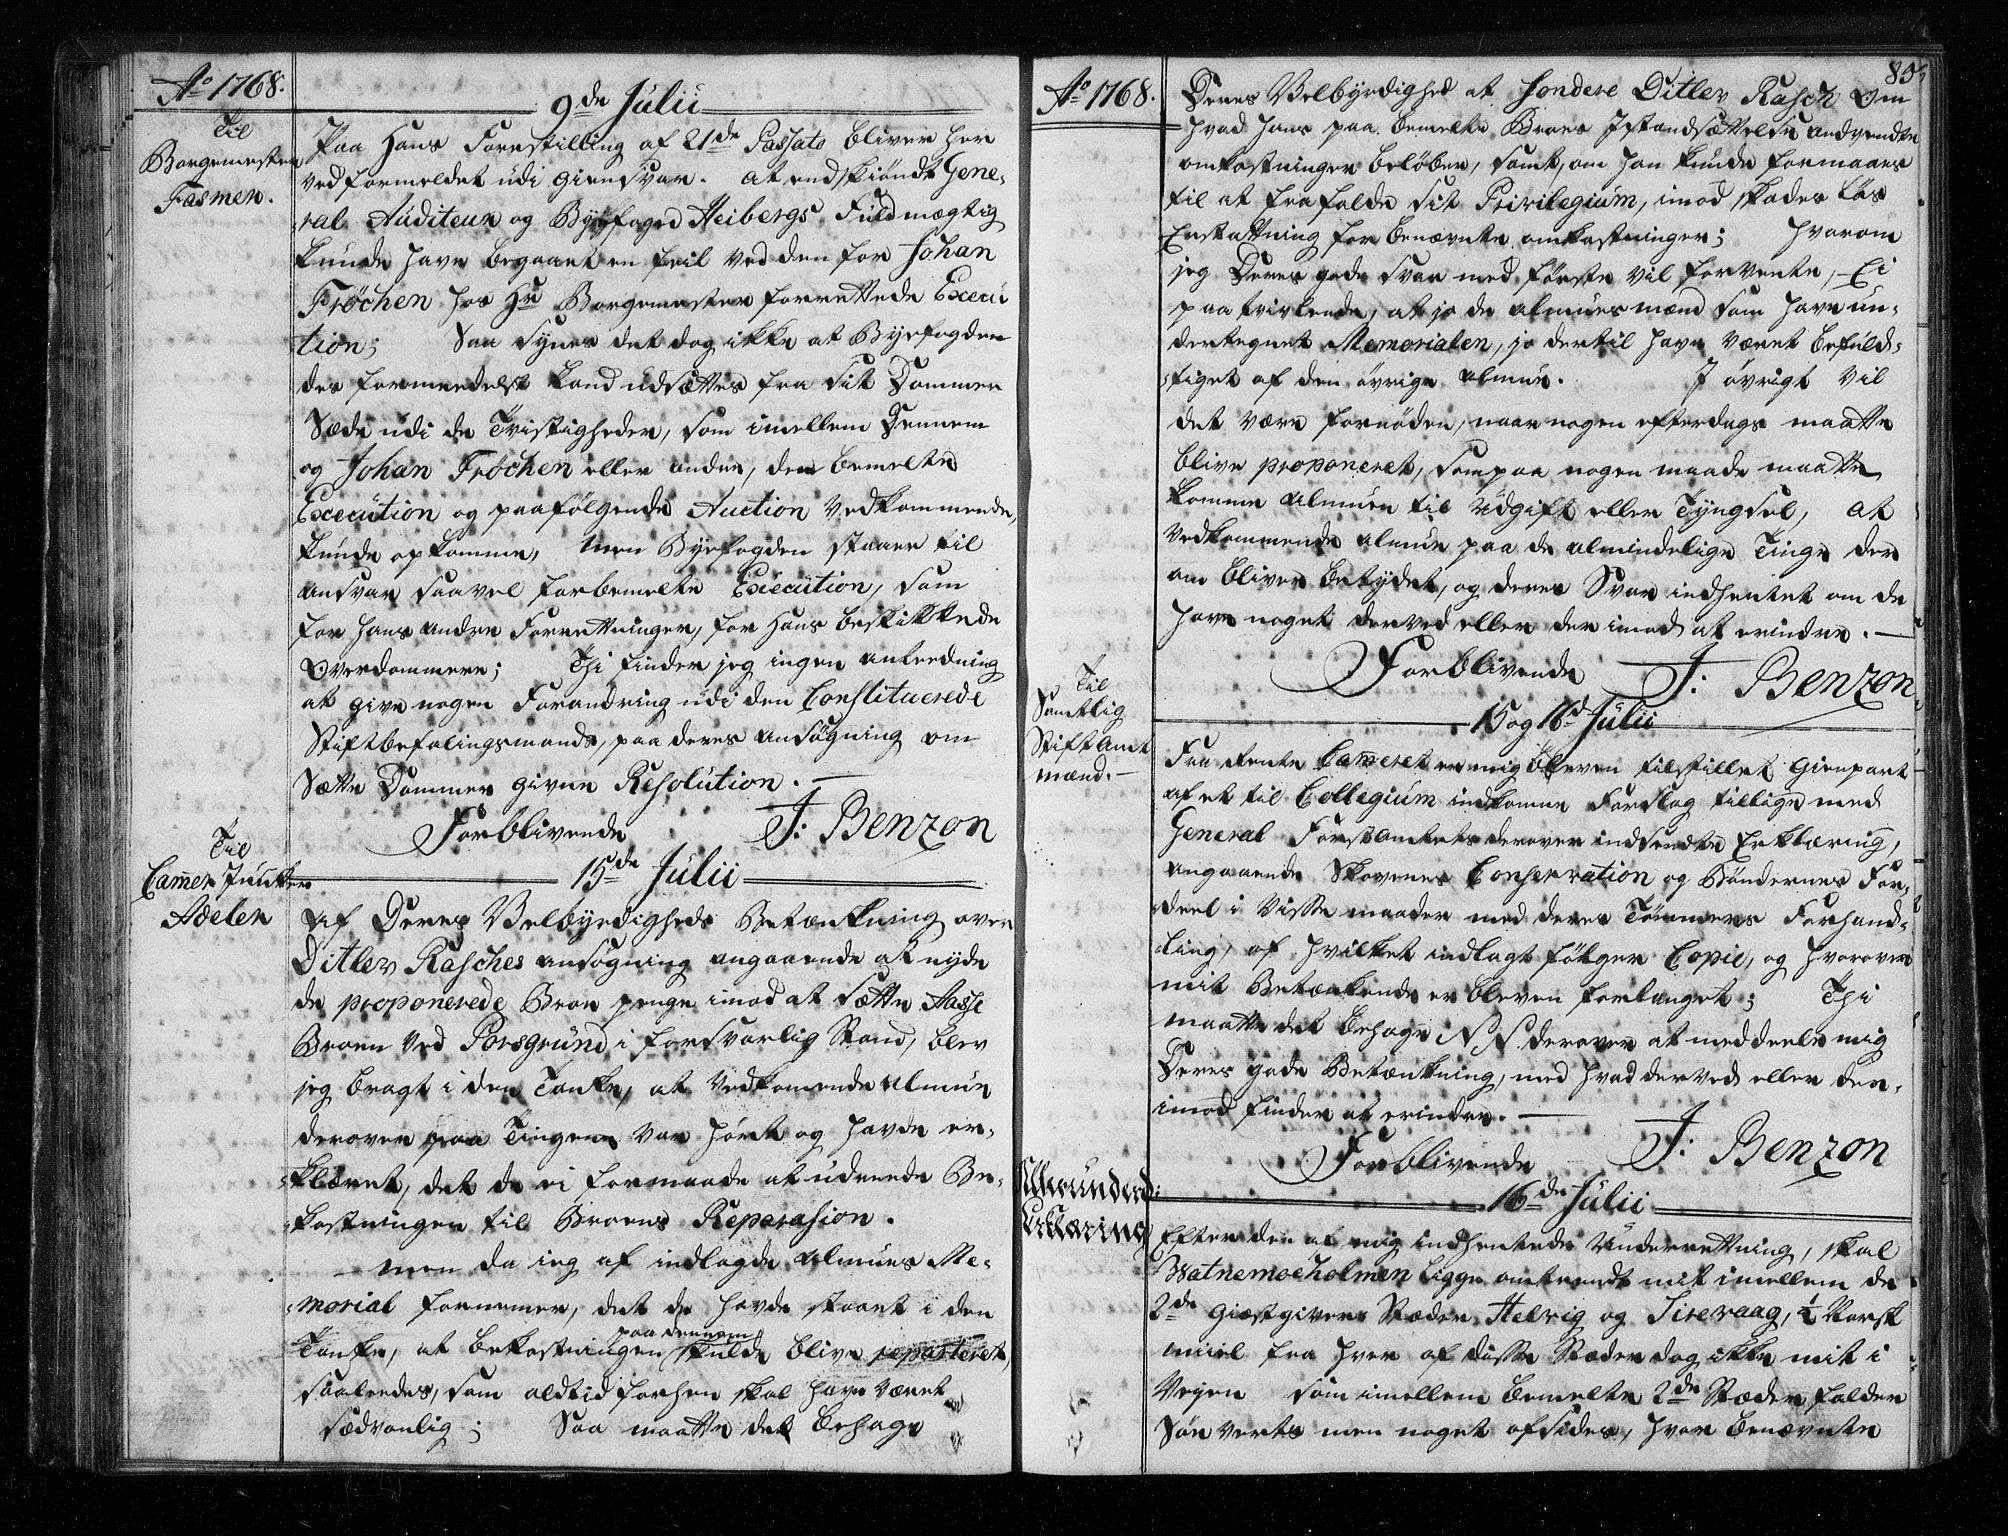 Aᵒ 1768.
9de Julii
Til
Borgemester
Fasmer.
Paa Hans Forestilling af 21de Passato bliver her
ved formeldet udi Giensvar. at endskiöndt Gene-
ral Auditeur og Byefoged Heibergs Fuldmægtig
kunde have begaaet en feil ved den for Johan
Fröchen hos Hr Borgemester forrettede Execu
tion; Saa synes det dog ikke at Byefogden
des formedelst kand udsættes fra sit Dommer
Sæde udi de Tvistigheder, som imellem Dennem
og Johan Fröchen eller andre, den bemelte
Execution og paafölgende Auction vedkommende,
kunde opkomme, men Byefogden staaer til
ansvar saavel for bemelte Execution, som
for hans andre Forretninger, for Hans beskikkede
Overdommere; Thi finder jeg ingen anleedning
at give nogen Forandring udi den Constituerede
Stiftbefalingsmands, paa deres ansögning om
Sætte Dommer givne Resolution. —
Forblivende J: Benzon
15de Julii
Til
Camer Juncker
Adeler
Af Deres Velbyrdigheds Betænkning over
Ditlev Rasches ansögning angaaende at nyde
de proponerede Broe penge imod at sætte Aasse
Broen ved Porsgrund i forsvarlig Stand, blev
jeg bragt i den Tanke, at Vedkomende Almue
derover paa Tingene var hört og havde er-
klæret, det de ei formaade at udrede Be-
kostningen til Broens Reparasion.
— men da jeg af indlagde Almues Me-
morial fornemer, det de havde staaet i den
Tanke, at bekostningen paa dennem skulde blive reparteret
saaledes, som altid forhen skal have været
sædvanlig; Saa maatte det behage
Aᵒ 1768.
85
Deres Velbyrdighed at sondere Ditlev Rasch om
hvad hans paa bemelte Broes Istandsættelse anvendte
omkostninger belöber, samt, om han kunde formaaes
til at frafalde sit Privilegium, imod skades lös
Erstatning for benævnte omkostninger; hvorom
jeg Deres gode svar med förste vil forvente, Ei
paatvivlende, at jo de almues mænd som have un-
dertegnet Memorialen, jo dertil have været befuld-
tiget af den övrige almue. I övrigt vil
det være fornöden, naar nogen efterdags maatte
blive proponeret, som paa nogen maade maatte
komme almuen til Udgift eller Tyngsel, at
vedkommende almue paa de almindelige Tinge der
om bliver betydet, og deres Svar indhentet om de
have noget derved eller derimod at erindre. —
Forblivende J: Benzon
15 og 16d Julii
Til
Samtlig
Stift Amt
mænd. —
Fra Rente Cameret er mig bleven tilstillet Gienpart
af et til Collegium indkomne Forslag tillige med
General Forstamtets derover indsendte Erklæring,
angaaende Skovenes Conservation og Böndernes For-
deel i Visse maader med deres Tömmers Forhand-
ling, af hvilket indlagt fölger Copie, og hvorover
mit Betænkende er bleven forlanget; Thi
maatte det behage N. N. derover at meddeele mig
Deres gode Betænkning, med hvad derved eller der-
imod finder at erindre. —
Forblivende J: Benzon
16de Julii
Allerunderd:
Erklæring
Efter den af mig indhentede Underretning, skal
Watnemoeholmen ligge omtrendt mit imellem de
2de Giæstgiver Stæder Helvig og Sirevaag, ½ Norsk
miil fra hver af disse Stæder dog ikke mit i
Veyen som imellem bemelte 2de Stæder falder
Sön verts men noget afsides, hvor benævnte